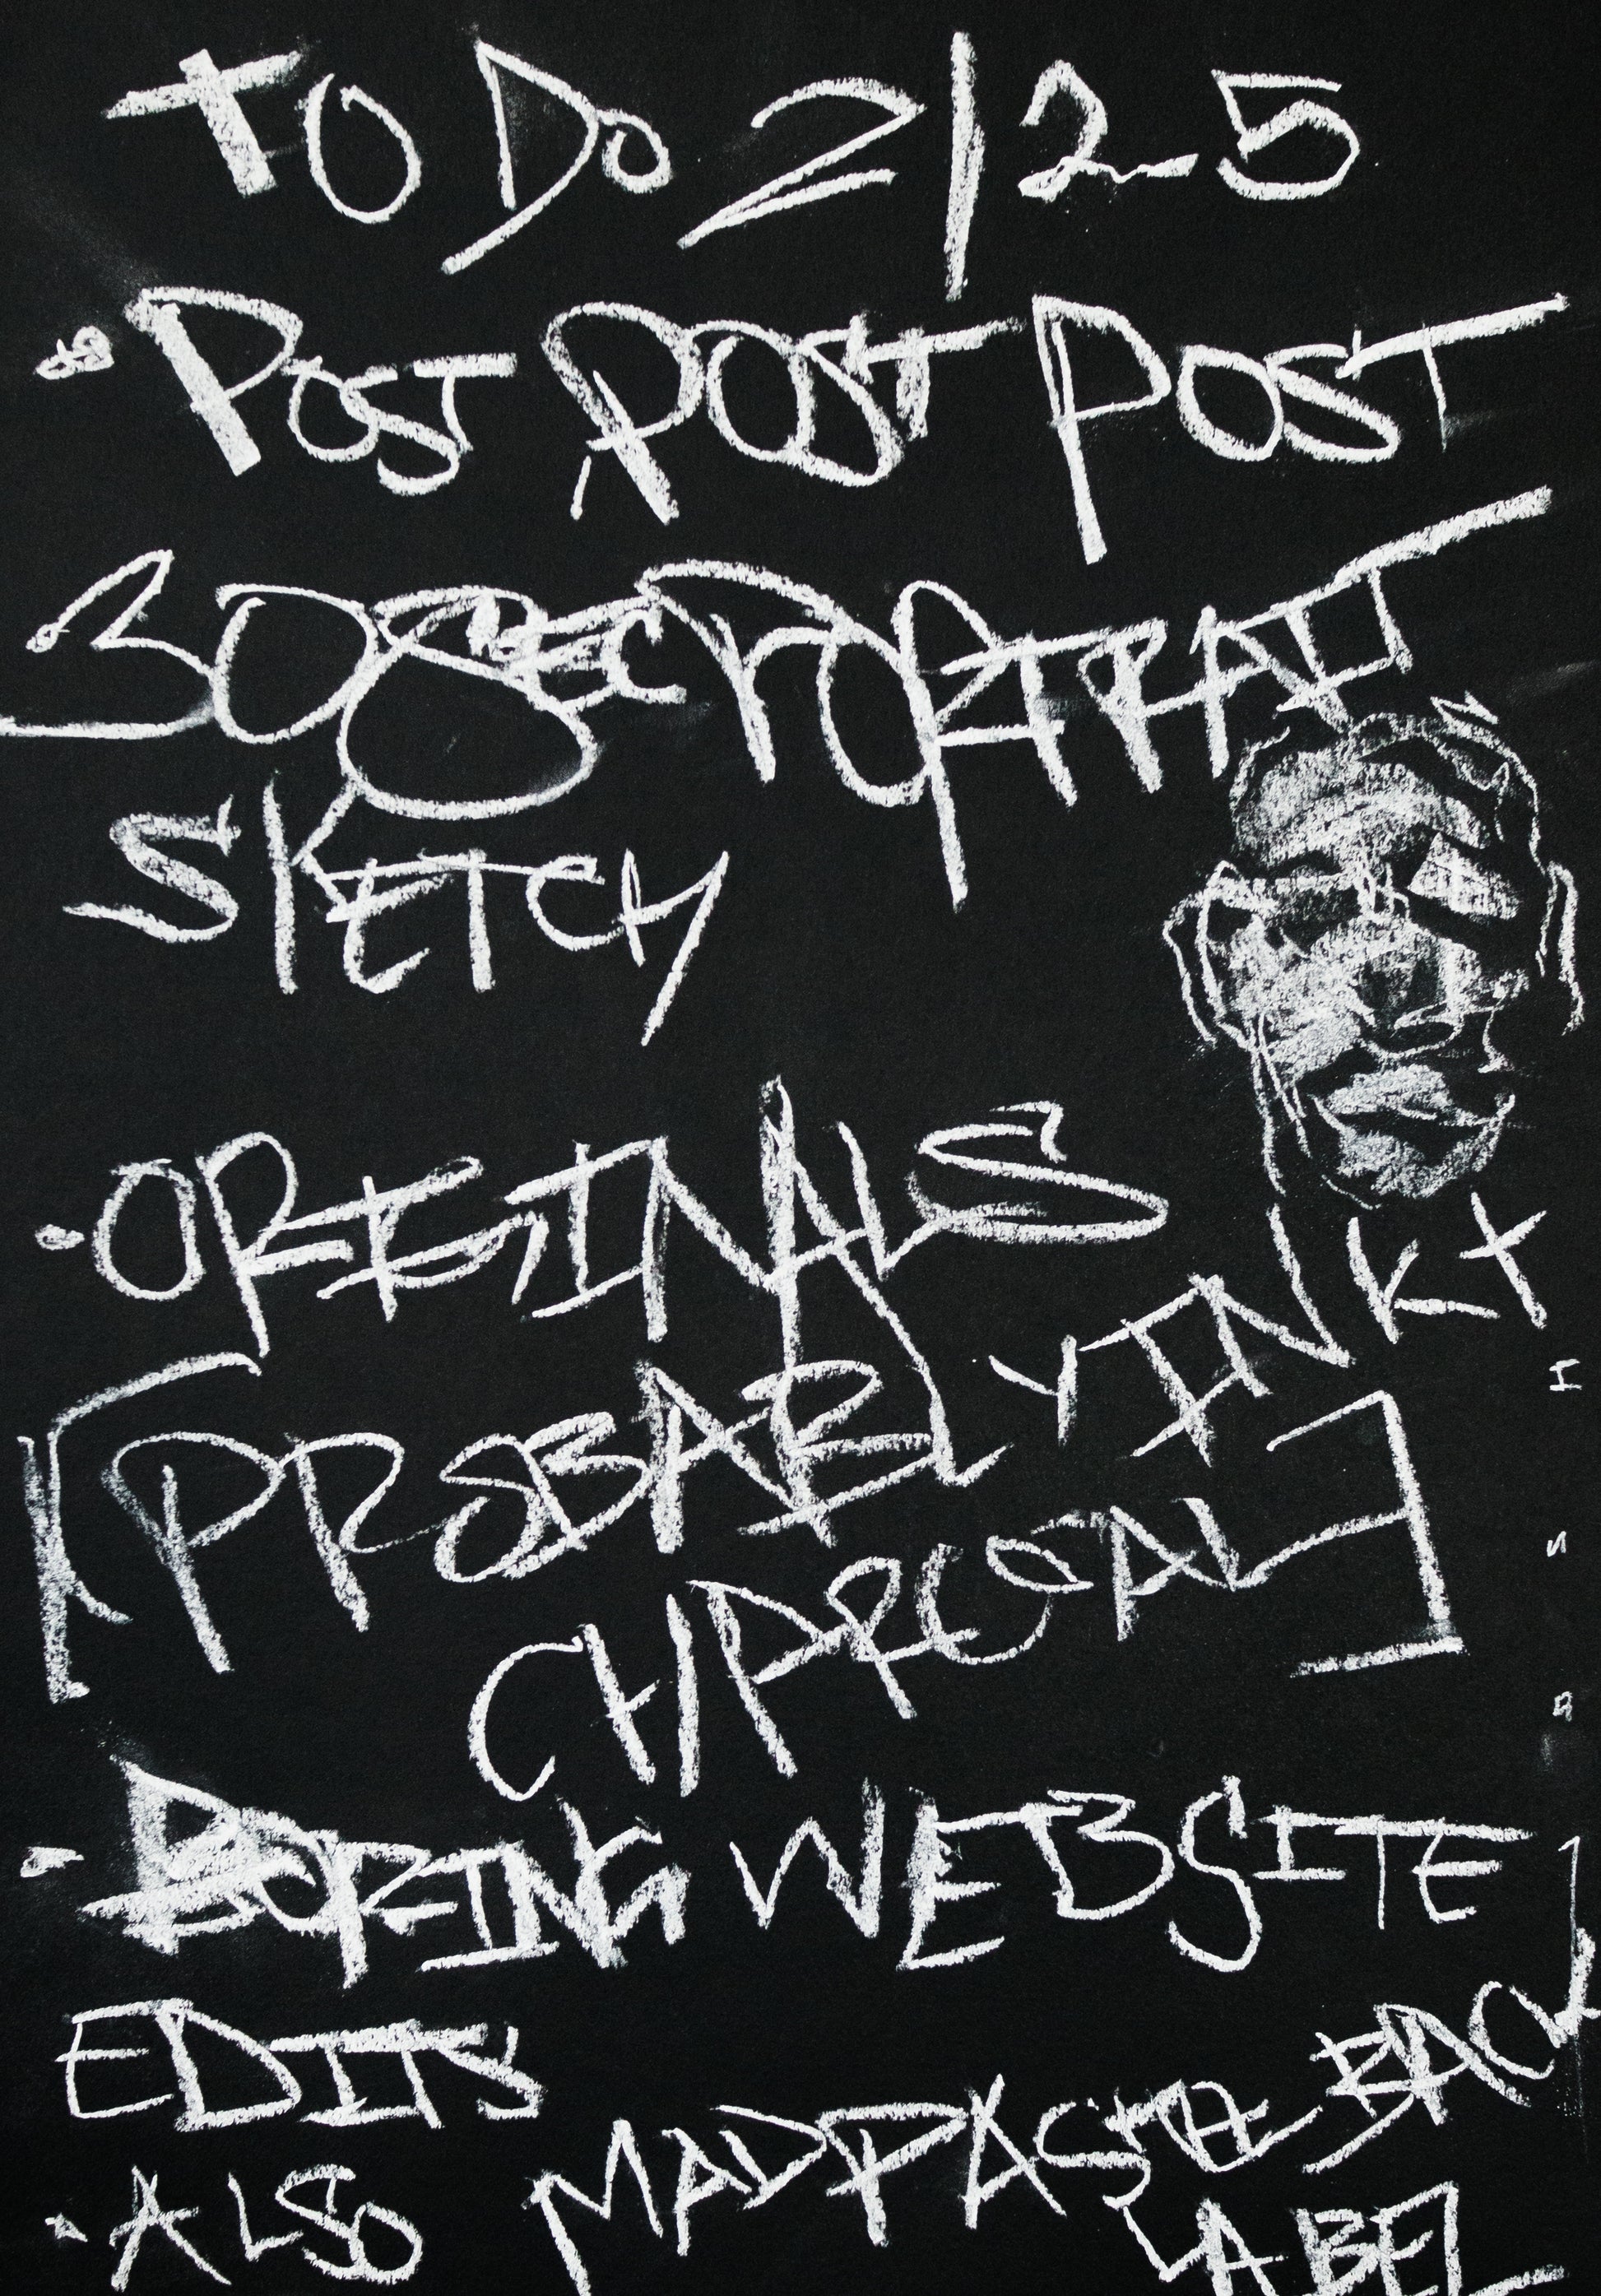 TO DO 2/25
• POST POST POST
30 SEC PORTRAIT
SKETCH
• ORIGINALS
[PROBABLY INK +
CHARCOAL]
• BORING WEBSITE
EDITS
• ALSO MAD PASTEL BACK
LABEL